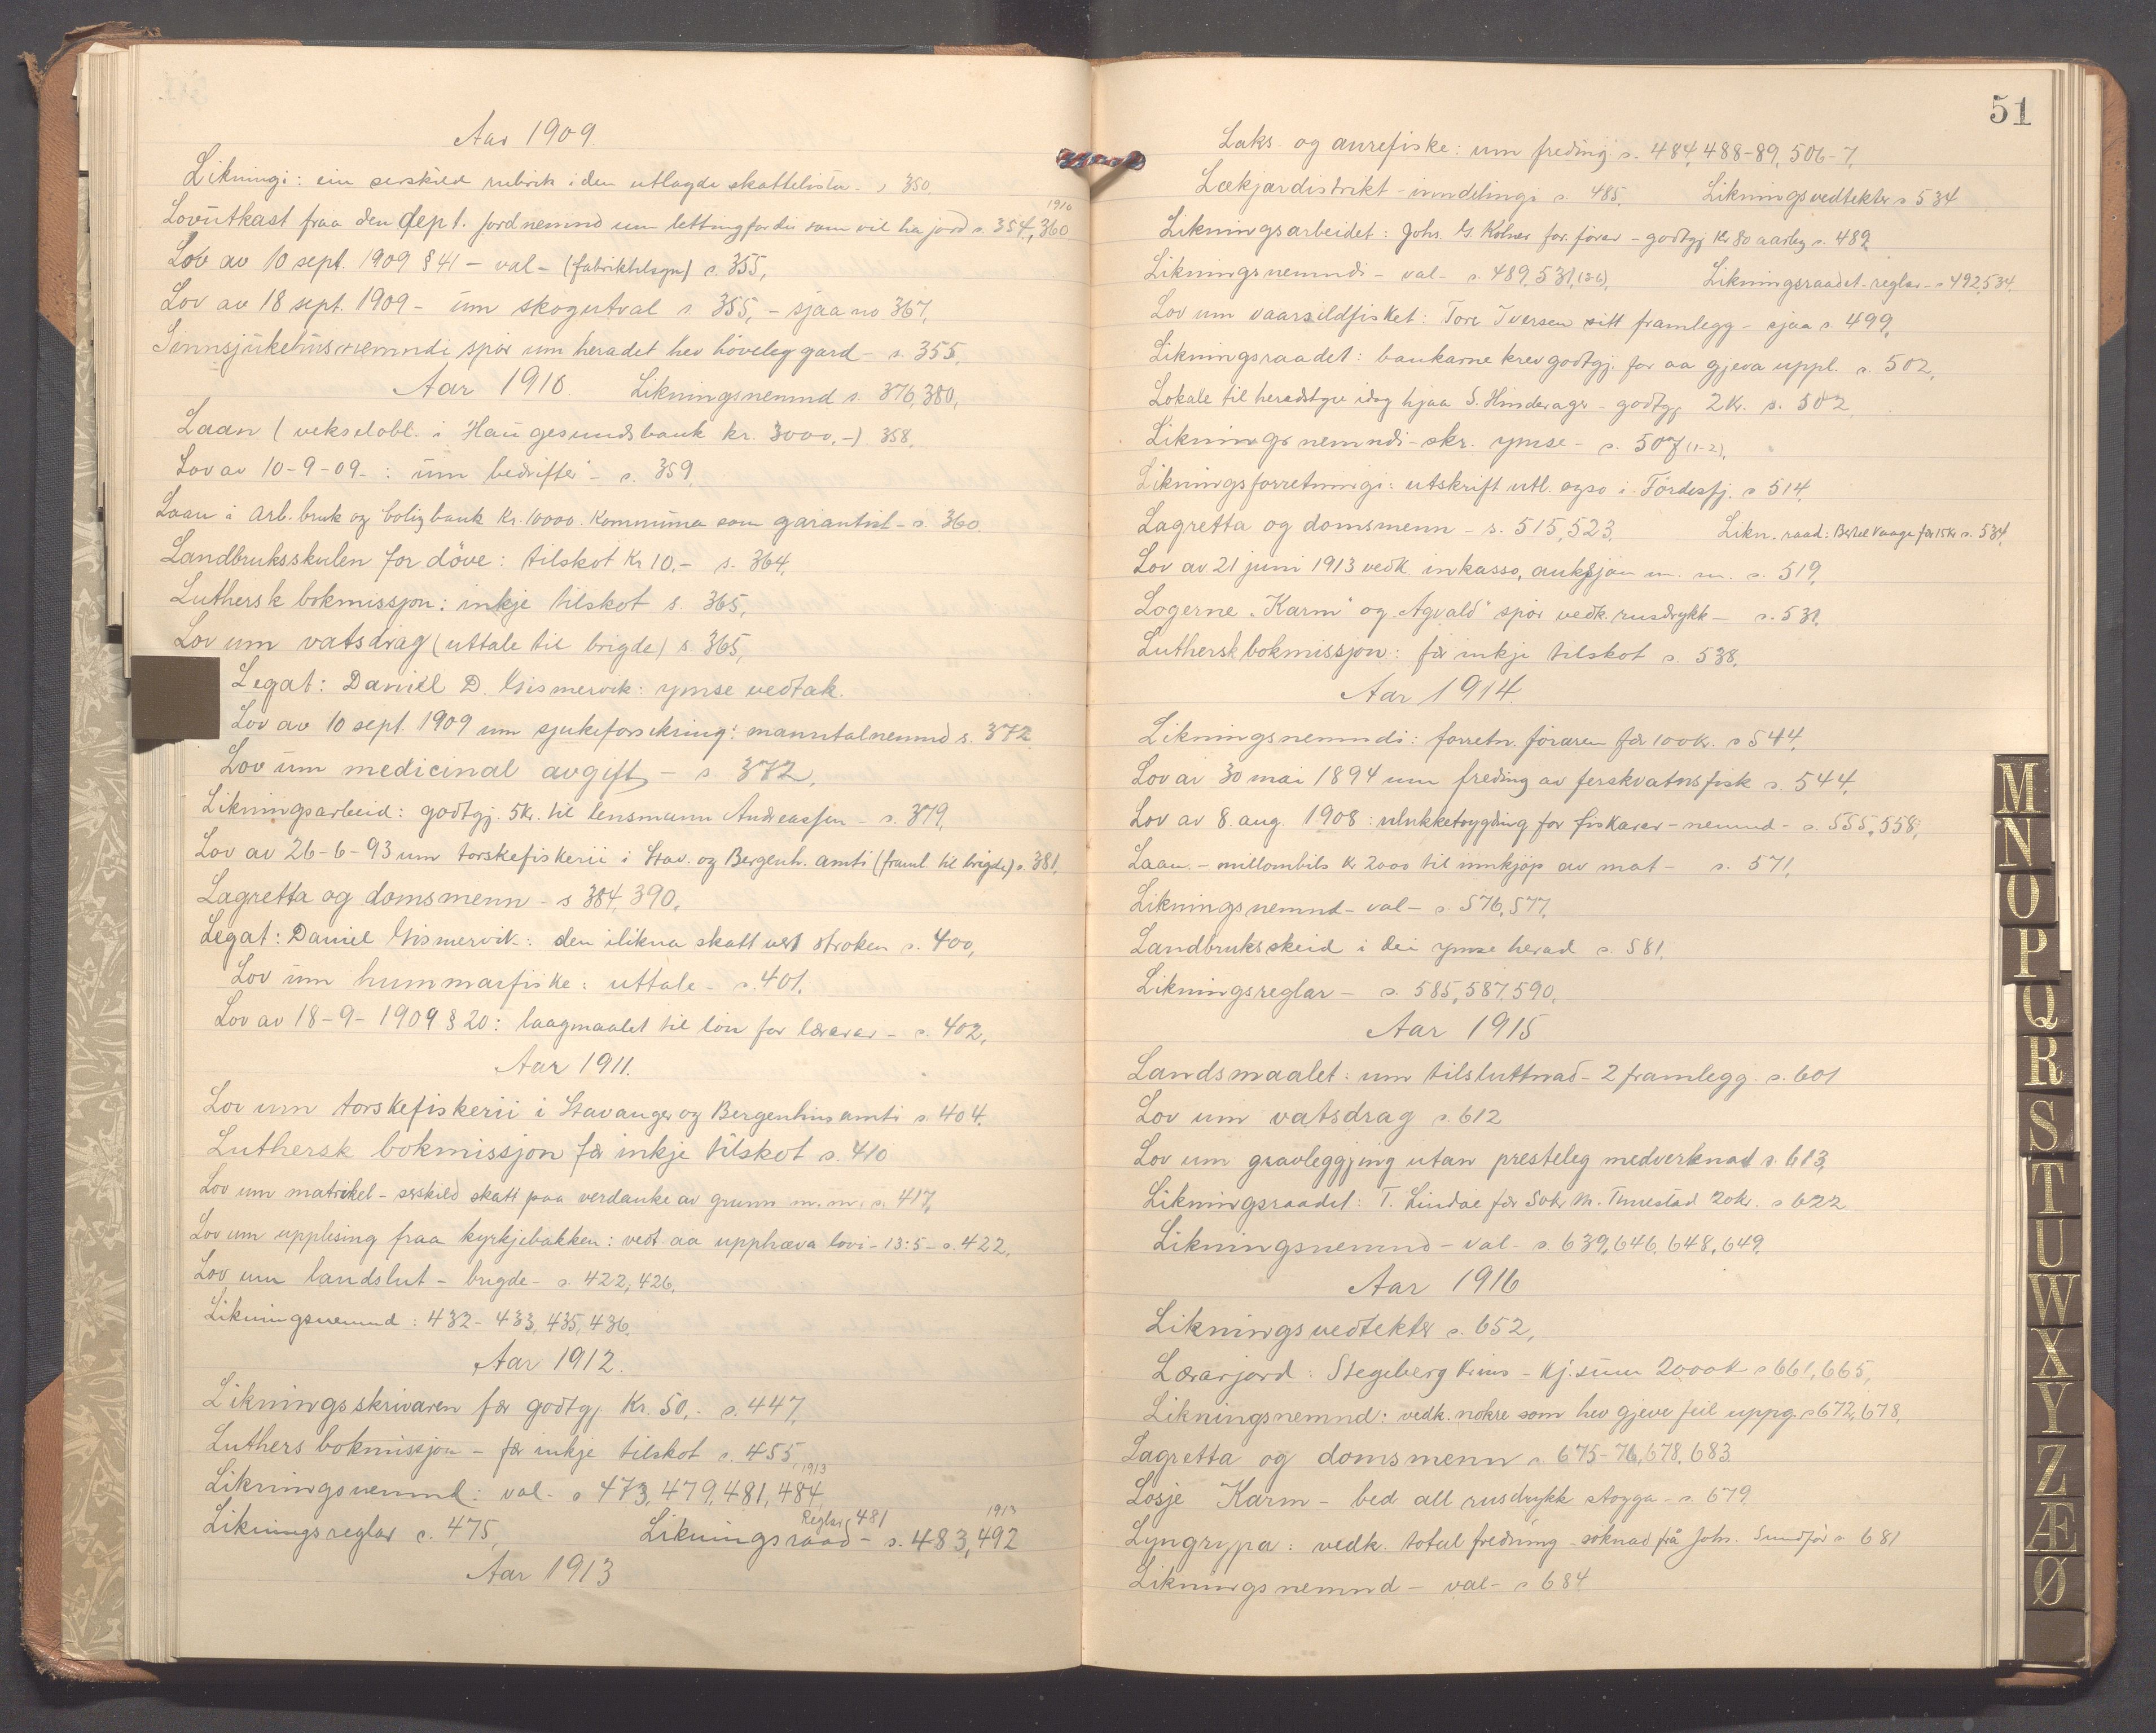 Aar 1909.
Likningi: ein serskild rubrik i den utlagde skattelista - s 350.
1910
Lovutkast fraa den dept. jordnemnd um letting for dei som vil ha jord s. 354, 360
Lov av 10 sept. 1909 § 41 - val - (fabriktilsyn) s. 355,
Lov av 18 sept. 1909 - um skogutval s. 355, - sjaa no 367,
Sinnsjukehusnemndi spör um heradet hev höveleg gard - s. 355,
Aar 1910. Likningsnemnd s. 376, 380,
Laan (vekselobl. i Haugesunds bank kr. 3000,-) 358,
Lov av 10-9-09 - : um bedrifter - s. 359,
Laan i Arb. bruk og boligbank Kr. 10000. Kommuna som garantist - s. 360.
Landbruksskulen for döve: tilskot Kr 10.- s. 364,
Luthersk bokmissjon: inkje tilskot s. 365,
Lov um vatsdrag (uttale til brigde) s. 365,
Legat: Daniel D. Gismervik: ymse vedtak.
Lov av 10 sept. 1909 um sjukeforsikring: manntalnemnd s. 372
Lov um medicinal avgift - s. 372,
Likningsarbeid: godtgj. 5kr. til lensmann Andreassen - s. 379,
Lov av 26-6-93 um torskefiskerii i Stav. og Bergenh. amti (framl. til brigde) s. 381,
Lagretta og domsmenn - s 384, 390,
Legat: Daniel Gismervik: den ilikna skatt vert stroken s. 400,
Lov um hummarfiske: uttale - s. 401.
Lov av 18-9-1909 § 20: laagmaalet til lön for lærarar - s. 402,
Aar 1911.
Lov um torskefiskerii i Stavanger og Bergenhus amti s 404.
Luthersk bokmissjon fær inkje tilskot s. 410
Lov um matrikel - serskild skatt paa verdauke av grunn m. m. s. 417,
Lov um upplising fraa kyrkjebakken: vedt aa upphæva lovi - 13:5 - s. 422,
Lov um landslut - brigde - s. 422, 426,
Likningsnemnd: 432 - 433, 435, 436,
Aar 1912.
Likningsskrivaren fær godtgj Kr. 50,- s. 447,
Luthers bokmissjon - fær inkje tilskot s. 455,
1913
Likningsnemnd: val - s 473, 479, 481, 484,
Reglar 481 1913
Likningsreglar s. 475, Likningsraad - s. 483, 492
Aar 1913
51
Laks- og aurefiske: um freding s. 484, 488-89, 506-7,
Lækjardistrikt - inndelingi s. 485, Likningsvedtekter s 534
Likningsarbeidet: Johs. G. Kolnes for. förar - godtgj Kr 80 aarleg s. 489
Likningsnemndi - val - s. 489, 531, (3-6), Likningsraadet - reglar - s 492, 534,
Lov um vaarsildfisket: Tore Iversen sitt framlegg - sjaa s. 499,
Likningsraadet: bankarne krev godtgj. for aa gjeva uppl. s. 502,
Lokale til heradstyre idag hjaa S. Hinderager - godtgj 2 Kr. s. 502
Likningsnemndi - skr. ymse - s. 507 (1-2),
Likningsforretningi: utskrift utl. ogso i Fördesfj. s 514,
Lagretta og domsmenn - s. 515, 523, Likn. raad: Bertel Vaage fær 15 Kr s. 534,
Lov av 21 juni 1913 vedk. inkasso, auksjon m. m. s. 519,
Logerne „Karm" og „Agvald" spör vedk. rusdrykk - s. 531,
Luthersk bokmissjon: fær inkje tilskot s. 538,
Aar 1914.
Likningsnemndi: forretn. föraren fær 100 Kr. s 544,
Lov av 30 mai 1894 um freding av ferskvatnsfisk s. 544,
Lov av 8. aug. 1908: ulukketrygding for fiskarar - nemnd - s. 555, 558,
Laan - millombils kr 2000 til innkjöp av mat - s. 571,
Likningsnemnd - val - s. 576, 577,
Landbruksskeid i dei ymse herad s. 581,
Likningsreglar - s. 585, 587, 590,
Aar 1915
Landsmaalet: um tilslutnad - 2 framlegg s. 601
Lov um vatsdrag s. 612
Lov um gravleggjing utan presteleg medverknad s. 613,
Likningsraadet: T. Lindøe fær 50 kr M. Tunestad 20 kr. s 622
Likningsnemnd - val - s. 639, 646, 648, 649,
Aar 1916
Likningsvedtekter s. 652,
Lærarjord: Stegeberg krins - kj. sum 2000 k s 661, 665,
Likningsnemnd: vedk. nokre som hev gjeve feil uppg. s 672, 678,
Lagretta og domsmenn s 675-76, 678, 683
Losje Karm - bed all rusdrykk stogga - s. 679
Lyngrypa: vedk. total fredning - söknad frå Johs. Sundför s 681
Likningsnemnd - val - s 684
M
N
O
P
Q
R
S
T
U
W
X
Y
Z
Æ
Ø